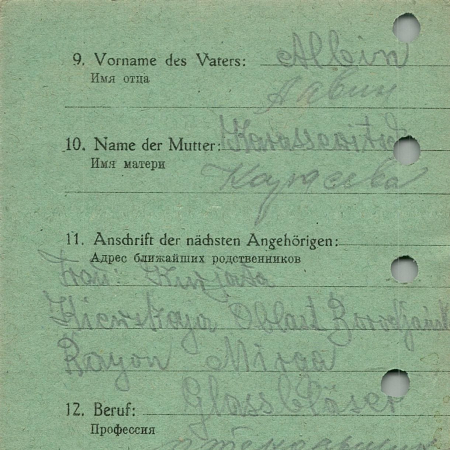 9. Vorname des Vaters: Albin
Имя отца Албин
10. Name der Mutter:
Имя матери
11. Anschrift der nächsten Angehörigen:
Адрес ближайших родственников
Frau:
Kiewskaja Oblast
Rayon Miraa
12. Beruf: Glassbläser
Профессия